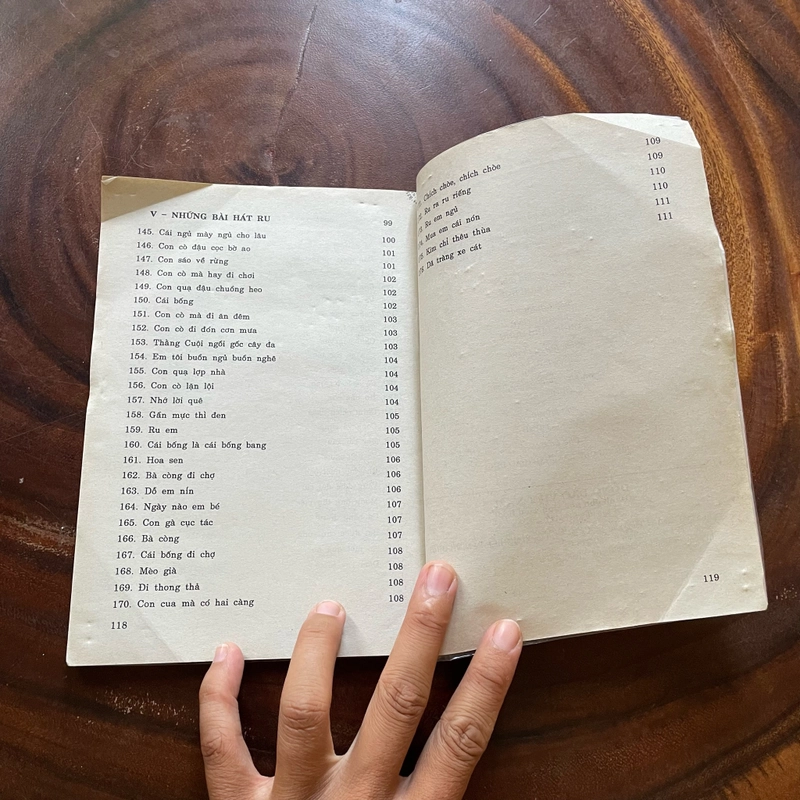 V – NHỮNG BÀI HÁT RU 99
145. Cái ngủ mày ngủ cho lâu 100
146. Con cò đậu cọc bờ ao 101
147. Con sáo về rừng 101
148. Con cò mà hay đi chơi 102
149. Con quạ đậu chuồng heo 102
150. Cái bống 102
151. Con cò mà đi ăn đêm 103
152. Con cò đi đón cơn mưa 103
153. Thằng Cuội ngồi gốc cây đa 103
154. Em tôi buồn ngủ buồn nghê 104
155. Con quạ lợp nhà 104
156. Con cò lặn lội 104
157. Nhớ lời quê 104
158. Gần mực thì đen 105
159. Ru em 105
160. Cái bống là cái bống bang 105
161. Hoa sen 106
162. Bà còng đi chợ 106
163. Dỗ em nín 106
164. Ngày nào em bé 107
165. Con gà cục tác 107
166. Bà còng 107
167. Cái bống đi chợ 108
168. Mèo già 108
169. Đi thong thả 108
170. Con cua mà có hai càng 108
118
Chích chòe, chích chòe 109
Ru ra ru riếng 109
Ru em ngủ 110
Mua em cái nón 110
Kim chỉ thêu thùa 111
Dã tràng xe cát 111
119